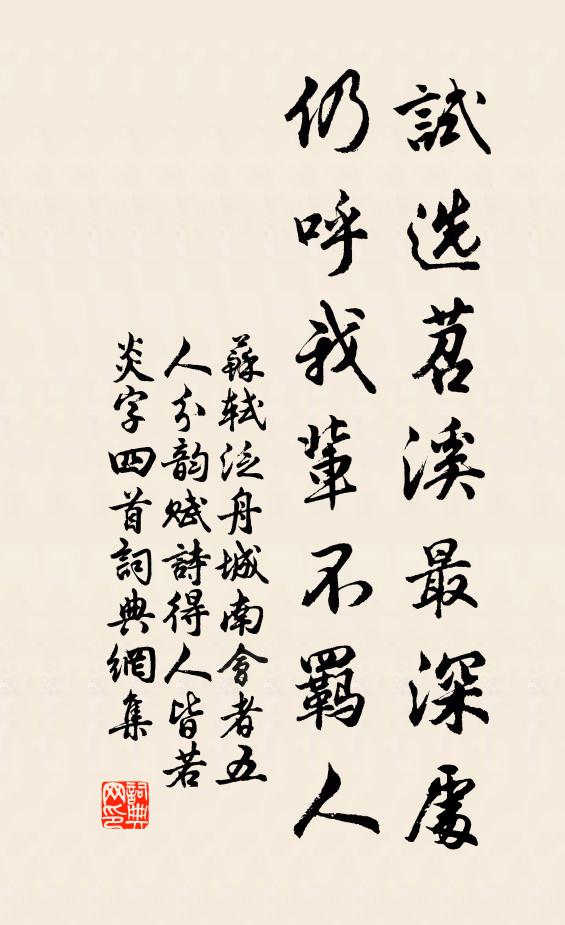 試選苕溪最深處
仍呼我輩不羈人
蘇軾泛舟城南會者五
人分韵賦詩得人皆若
炎字四首詞典網集
詞典网印